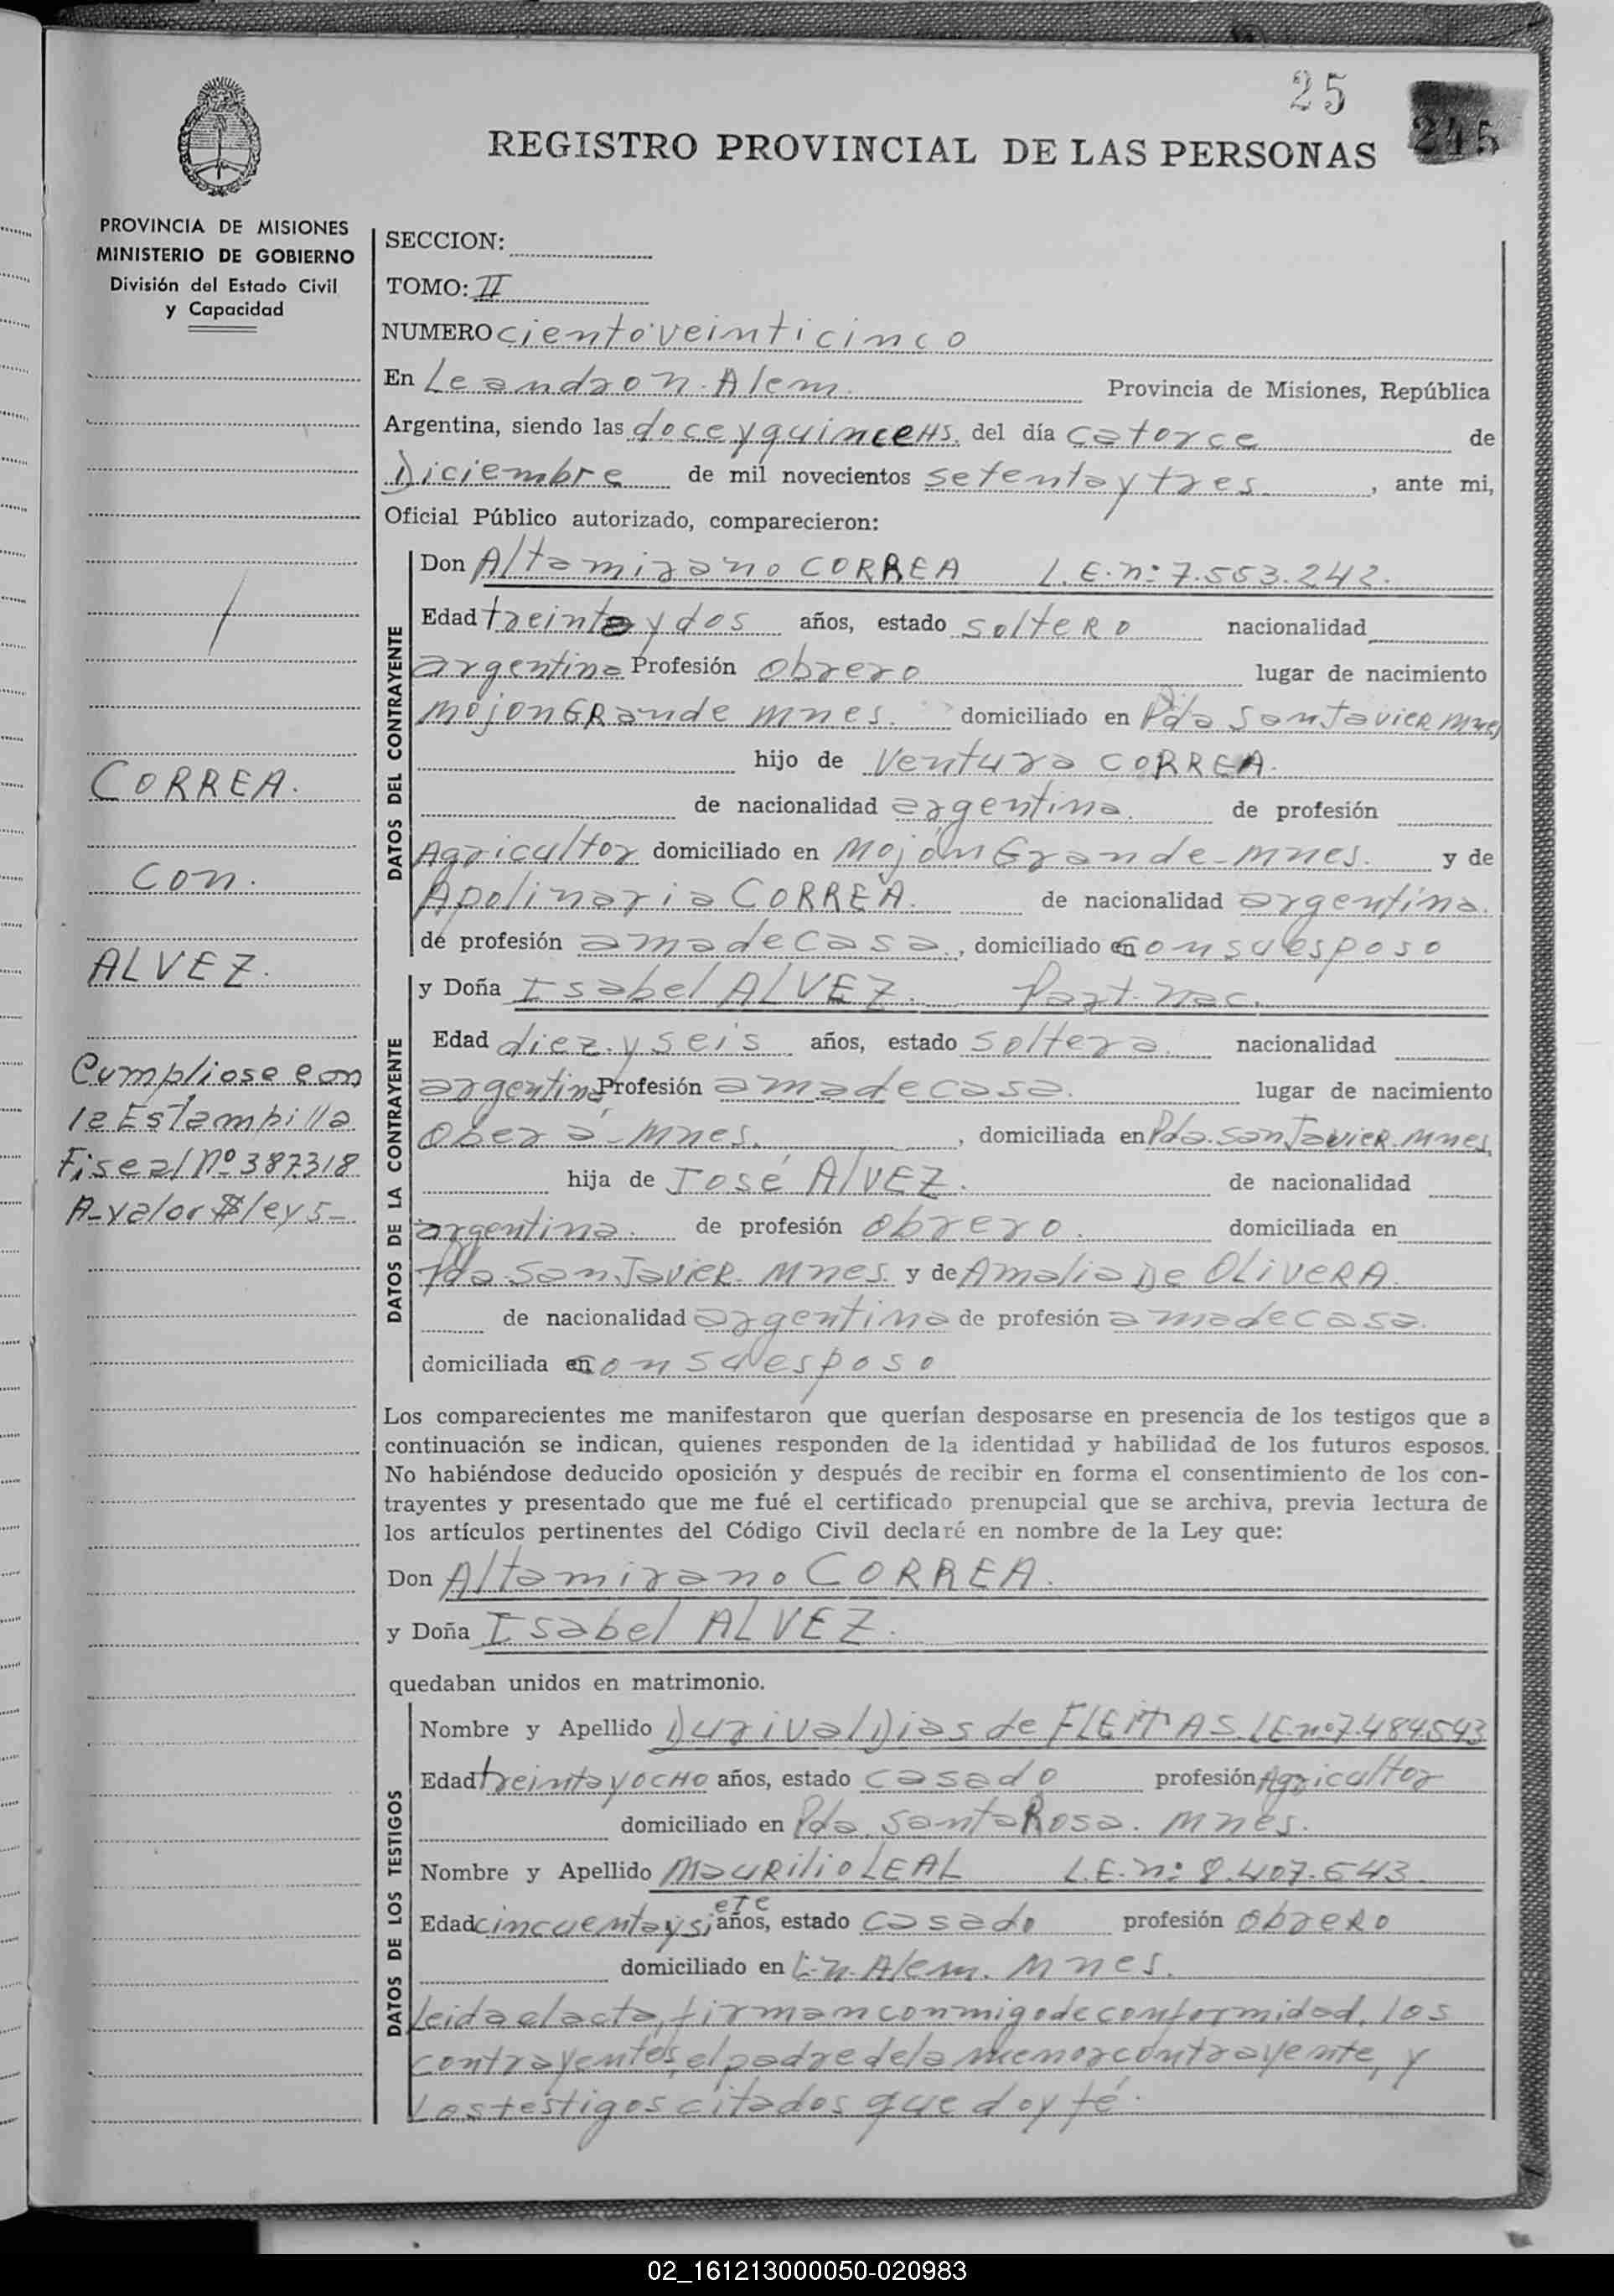 25
245
REGISTRO PROVINCIAL DE LAS PERSONAS
PROVINCIA DE MISIONES
MINISTERIO DE GOBIERNO
División del Estado Civil
y Capacidad
SECCION:
TOMO: II
NUMERO ciento veinticinco
En Leandro N. Alem. Provincia de Misiones, República
Argentina, siendo las doce y quince HS. del día catorce de
Diciembre de mil novecientos setenta y tres , ante mi,
Oficial Público autorizado, comparecieron:
DATOS DEL CONTRAYENTE
Don Altamirano CORREA L.E.nº 7.553.242.
Edad treinta y dos años, estado soltero nacionalidad
argentina Profesión obrero lugar de nacimiento
mojon GRande mnes. domiciliado en Pda San Javier mnes
hijo de Ventura CORREA.
de nacionalidad argentina. de profesión
Agricultor domiciliado en Mojón Grande-mnes. y de
Apolinaria CORREA. de nacionalidad argentina.
de profesión ama de casa., domiciliado en con su esposo
CORREA.
con.
ALVEZ.
Cumpliose con
la Estampilla
Fiscal Nº 387318
A-valor $ ley 5-
DATOS DE LA CONTRAYENTE
y Doña Isabel ALVEZ. Part. nac.
Edad diez y seis años, estado soltera. nacionalidad
argentina Profesión ama de casa. lugar de nacimiento
Oberá-Mnes. , domiciliada en Pda. San Javier. Mnes
hija de José AlVEZ. de nacionalidad
argentina. de profesión obrero. domiciliada en
Pda. San Javier. Mnes y de Amalia De OLIVERA.
de nacionalidad argentina de profesión ama de casa.
domiciliada en con su esposo
Los comparecientes me manifestaron que querían desposarse en presencia de los testigos que a
continuación se indican, quienes responden de la identidad y habilidad de los futuros esposos.
No habiéndose deducido oposición y después de recibir en forma el consentimiento de los con-
trayentes y presentado que me fué el certificado prenupcial que se archiva, previa lectura de
los artículos pertinentes del Código Civil declaré en nombre de la Ley que:
Don Altamirano CORREA.
y Doña Isabel ALVEZ.
quedaban unidos en matrimonio.
DATOS DE LOS TESTIGOS
Nombre y Apellido Durival Dias de FLEITAS. LE.nº 7.484.543
Edad treinta y ocHo años, estado casado profesión Agricultor
domiciliado en Pda. Santa Rosa. Mnes.
Nombre y Apellido MauRilio LEAL L.E.nº 8.407.643.
Edad cincuenta y siete años, estado casado profesión obrero
domiciliado en L.N. Alem. Mnes.
leida el acta, firman conmigo de conformidad, los
contrayentes, el padre de la menor contrayente, y
los testigos citados que doy fé.
02_161213000050-020983